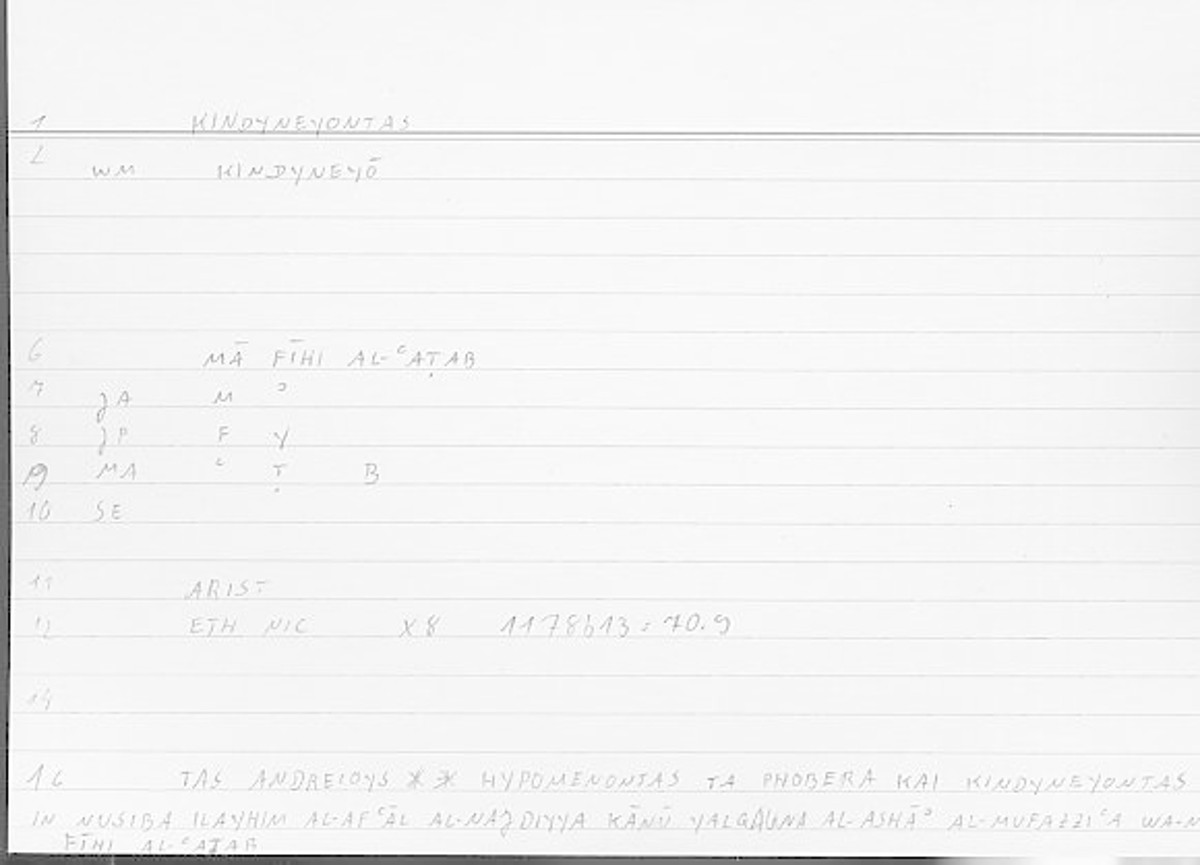 1 KINDYNEYONTAS
2 WM KINDYNEYŌ
6 MĀ FĪHI AL-ʿAṬAB
7 JA M ʾ
8 JP F Y
9 MA ʿ Ṭ B
10 SE
11 ARIST
12 ETH NIC X8 1178b13 = 70.9
14
16 TAS ANDREIOYS ** HYPOMENONTAS TA PHOBERA KAI KINDYNEYONTAS
IN NUSIBA ILAYHIM AL-AFʿĀL AL-NAJDIYYA KĀNŪ YALQAUNA AL-ASHĀʾ AL-MUFAZZIʿA WA-
FĪHI AL-ʿAṬAB